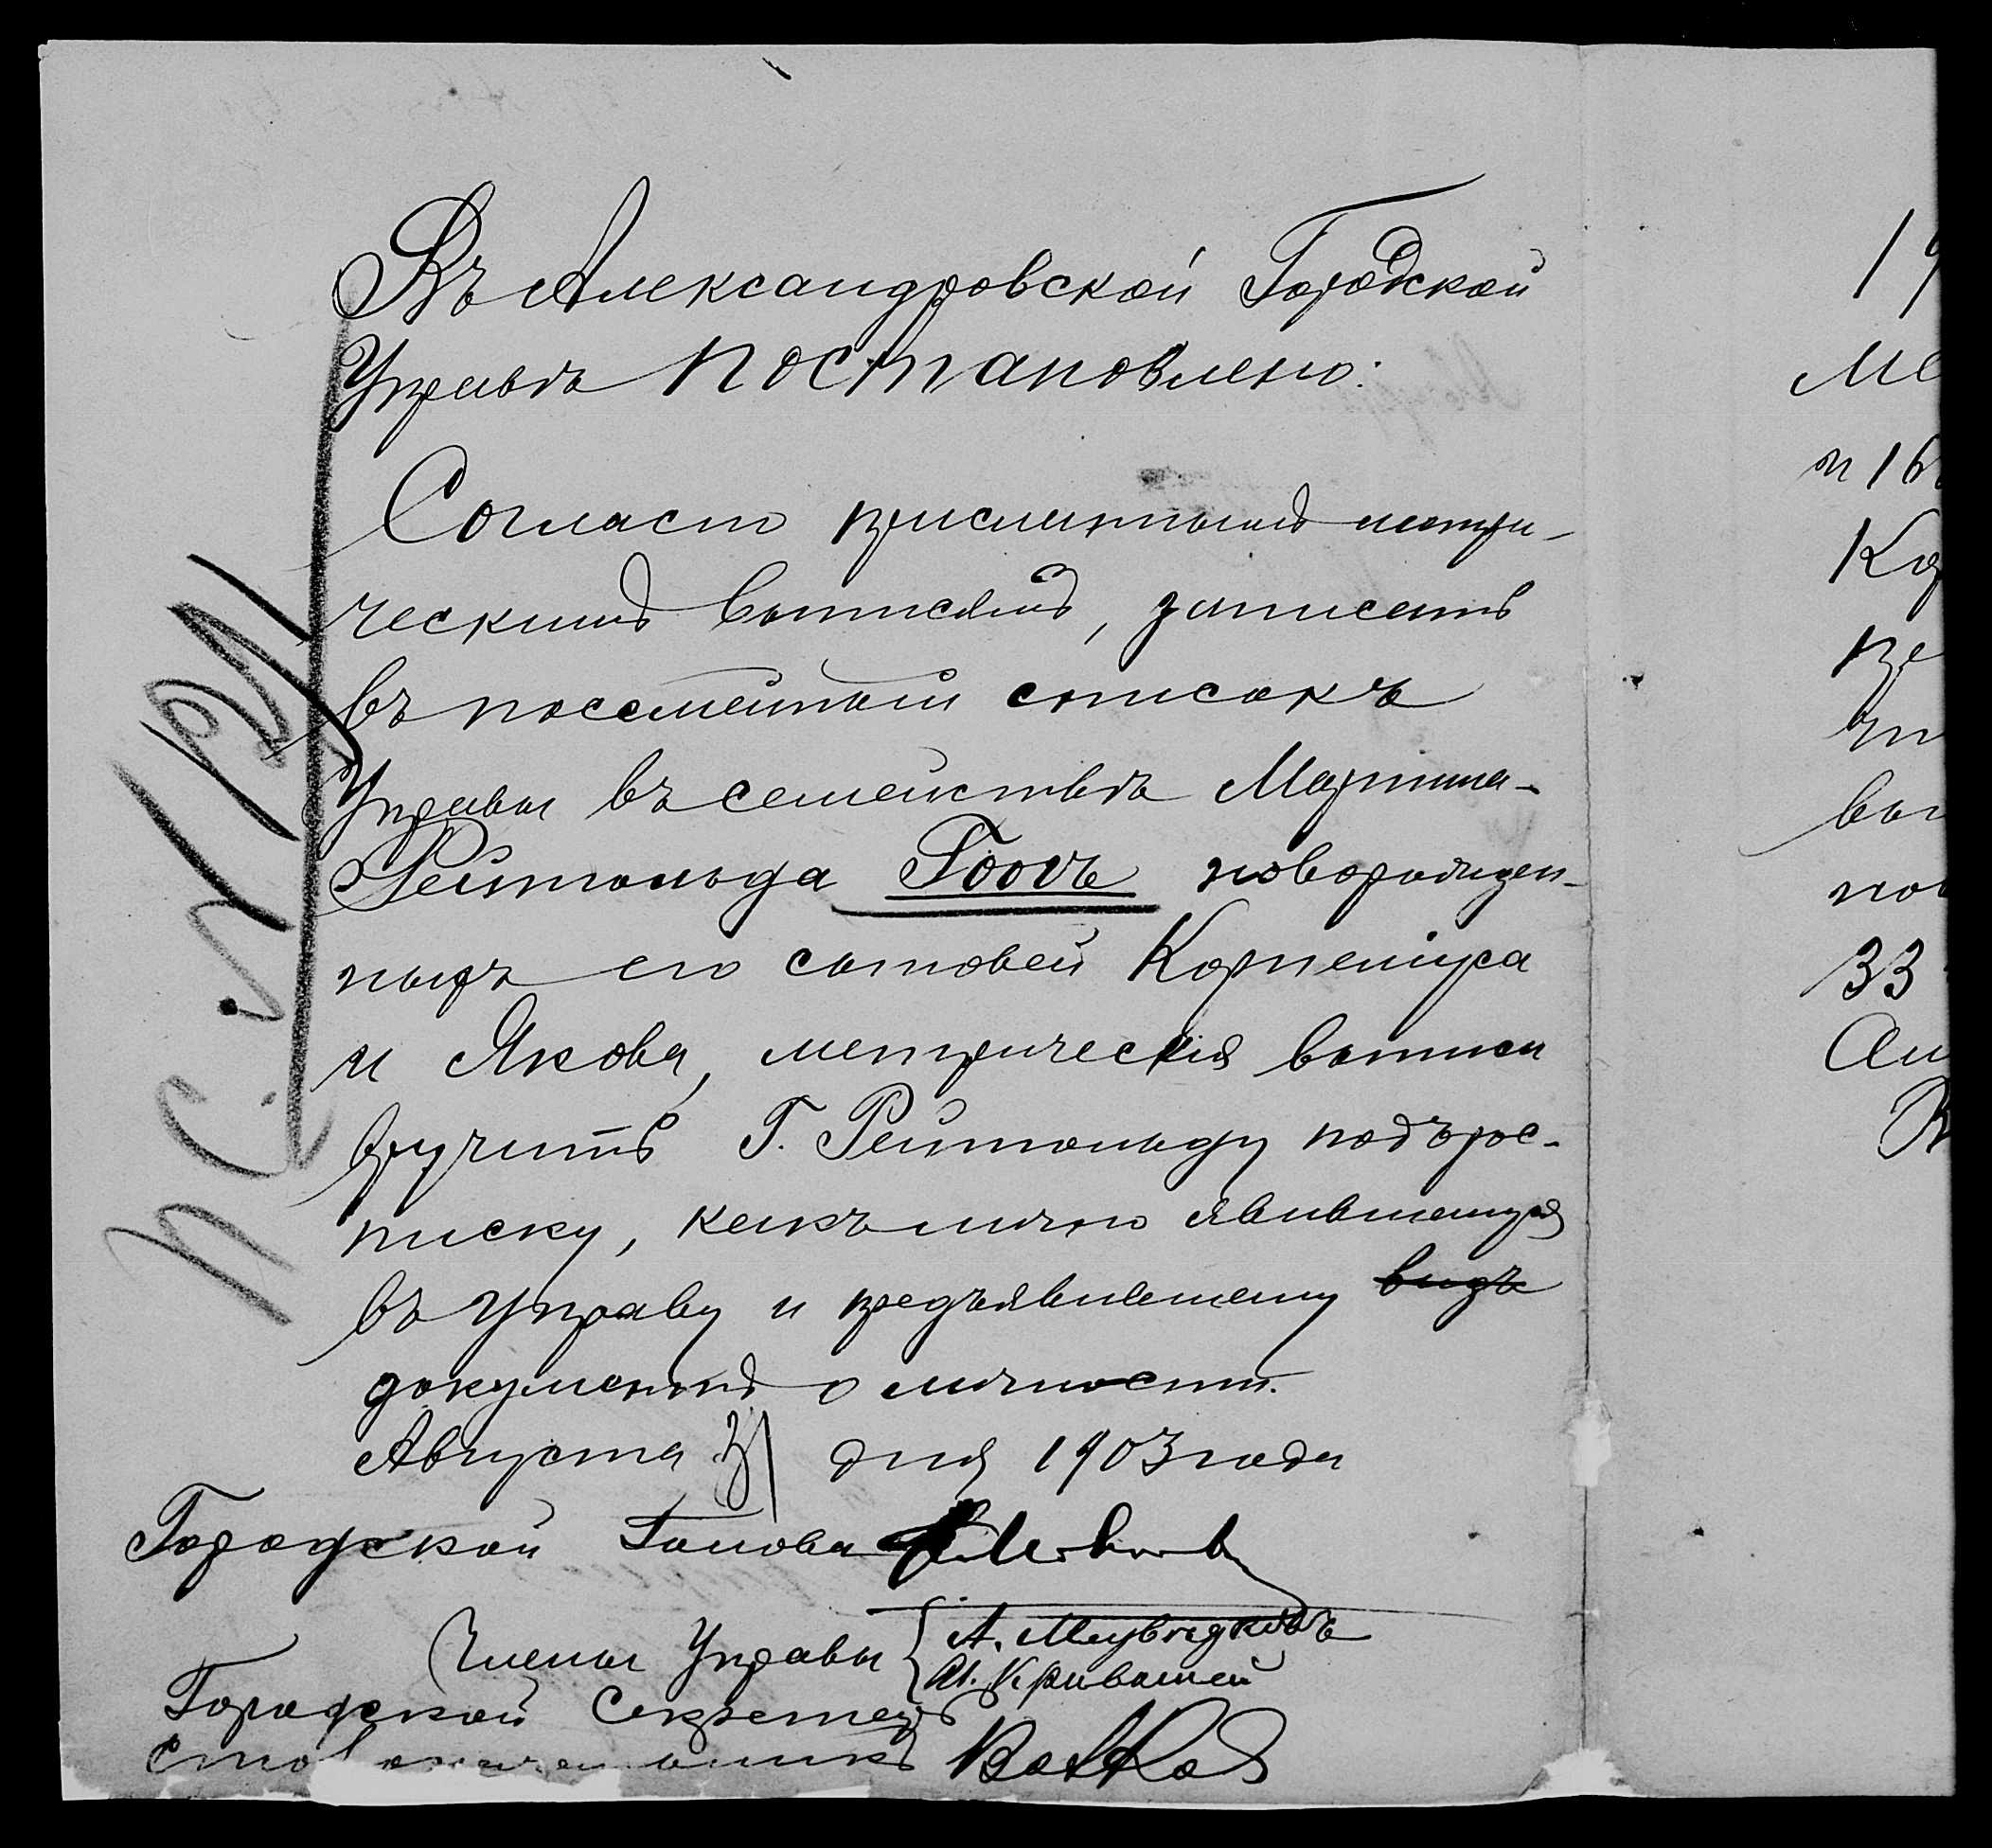 Въ Александровской Городской
Управѣ постановлено:
Согласно присланнымъ метри-
ческимъ выписямъ, записать
въ посемейный списокъ
Управы въ семействѣ Мартина-
Рейнгольда Гоовъ новорожден-
ныхъ его сыновей Корнеліуса
и Якова, метрическія выписи
вручить Г. Рейнгольду подъ рос-
писку, какъ лично явившемуся
въ Управу и предъявившему видъ
документъ о личности.
Августа 31 дня 1903 года
Городской Голова
Члены Управы
А.
И. Кривошей
Городской Секретарь
19
Ме
и 16
Ко
пе
вы
нов
33